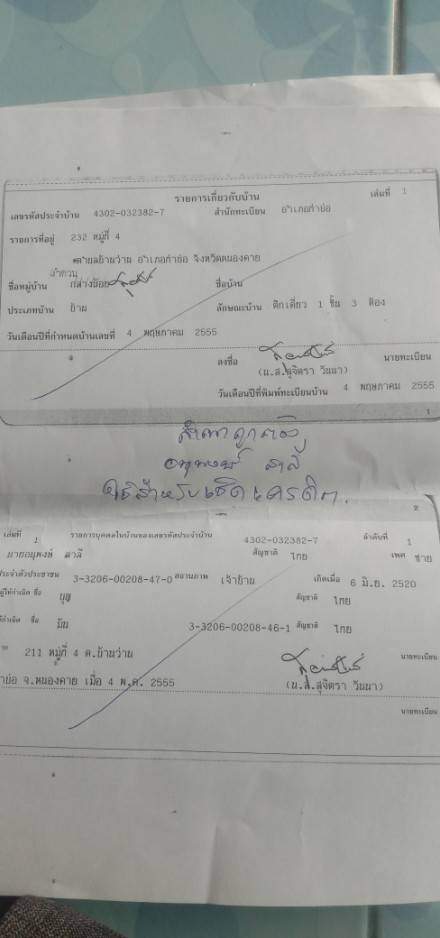 เล่มที่ 1
รายการเกี่ยวกับบ้าน
เลขรหัสประจำบ้าน 4302-032382-7 สำนักทะเบียน อำเภอท่าบ่อ
รายการที่อยู่ 232 หมู่ที่ 4
ตำบลบ้านว่าน อำเภอท่าบ่อ จังหวัดหนองคาย
ชื่อหมู่บ้าน กลางน้อย ชื่อบ้าน
ประเภทบ้าน บ้าน ลักษณะบ้าน ตึกเดี่ยว 1 ชั้น 3 ห้อง
วันเดือนปีที่กำหนดบ้านเลขที่ 4 พฤษภาคม 2555
ลงชื่อ นายทะเบียน
(น.ส.สุจิตรา วันนา)
วันเดือนปีที่พิมพ์ทะเบียนบ้าน 4 พฤษภาคม 2555
1
สำเนาถูกต้อง
อนุพงษ์ ดาลี
ใช้สำหรับเช็คเครดิต
2
เล่มที่ 1 รายการบุคคลในบ้านของเลขรหัสประจำบ้าน 4302-032382-7 ลำดับที่ 1
นายอนุพงษ์ ดาลี สัญชาติ ไทย เพศ ชาย
ประจำตัวประชาชน 3-3206-00208-47-0 สถานภาพ เจ้าบ้าน เกิดเมื่อ 6 มิ.ย. 2520
ผู้ให้กำเนิด ชื่อ สัญชาติ ไทย
กำเนิด ชื่อ 3-3206-00208-46-1 สัญชาติ ไทย
211 หมู่ที่ 4 ต.บ้านว่าน นายทะเบียน
าบ่อ จ.หนองคาย เมื่อ 4 พ.ค. 2555 (น.ส.สุจิตรา วันนา)
นายทะเบียน